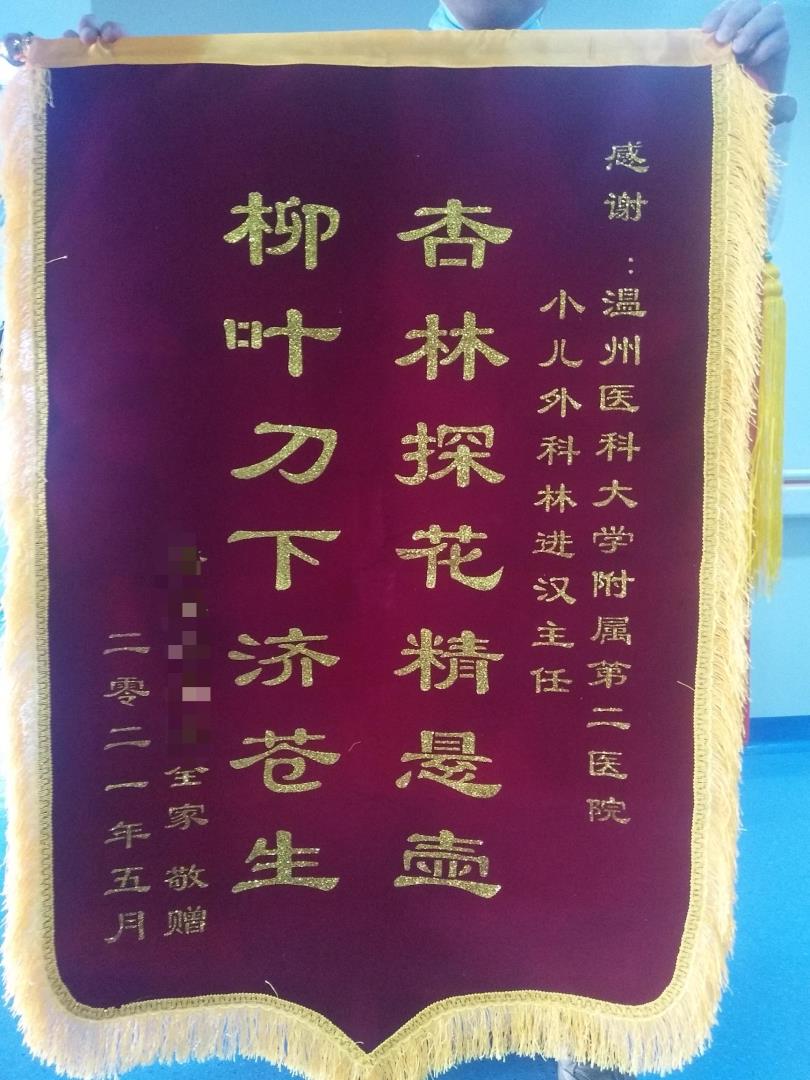 感谢：温州医科大学附属第二医院
小儿外科林进汉主任
杏林探花精悬壶
柳叶刀下济苍生
全家敬赠
二零二一年五月